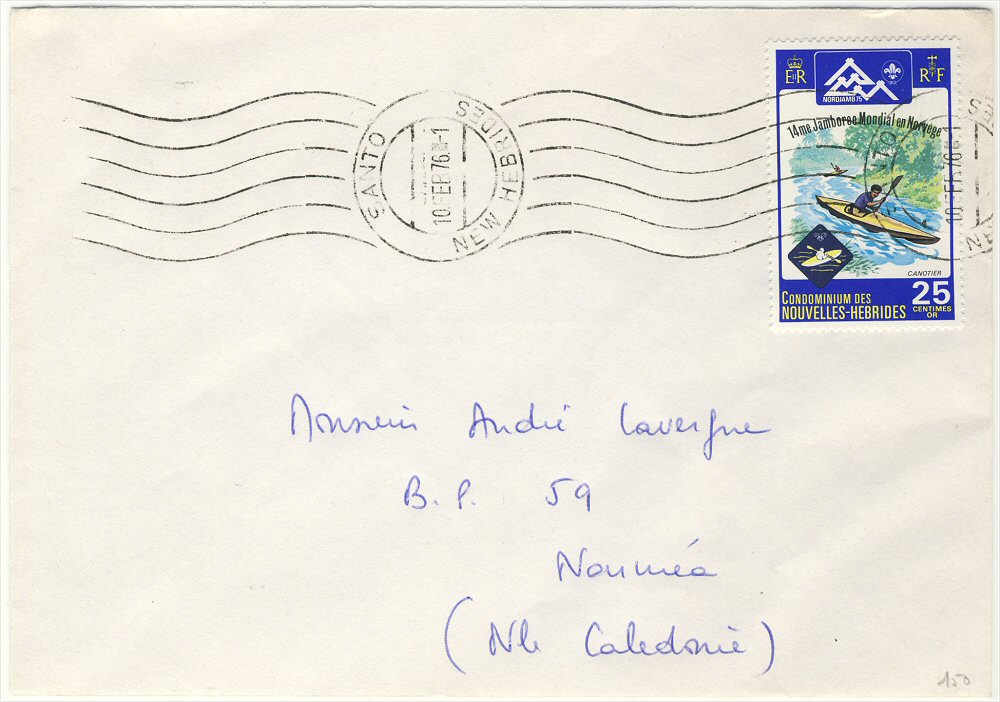 SANTO NEW HEBRIDES
10 FEB 76
EIIR
NORDJAMB 75
RF
14me Jamboree Mondial en Norvège
CANOTIER
CONDOMINIUM DES
NOUVELLES-HEBRIDES
25
CENTIMES
OR
Monsieur André Lavergne
B.P. 59
Nouméa
(Nlle Calédonie)
150